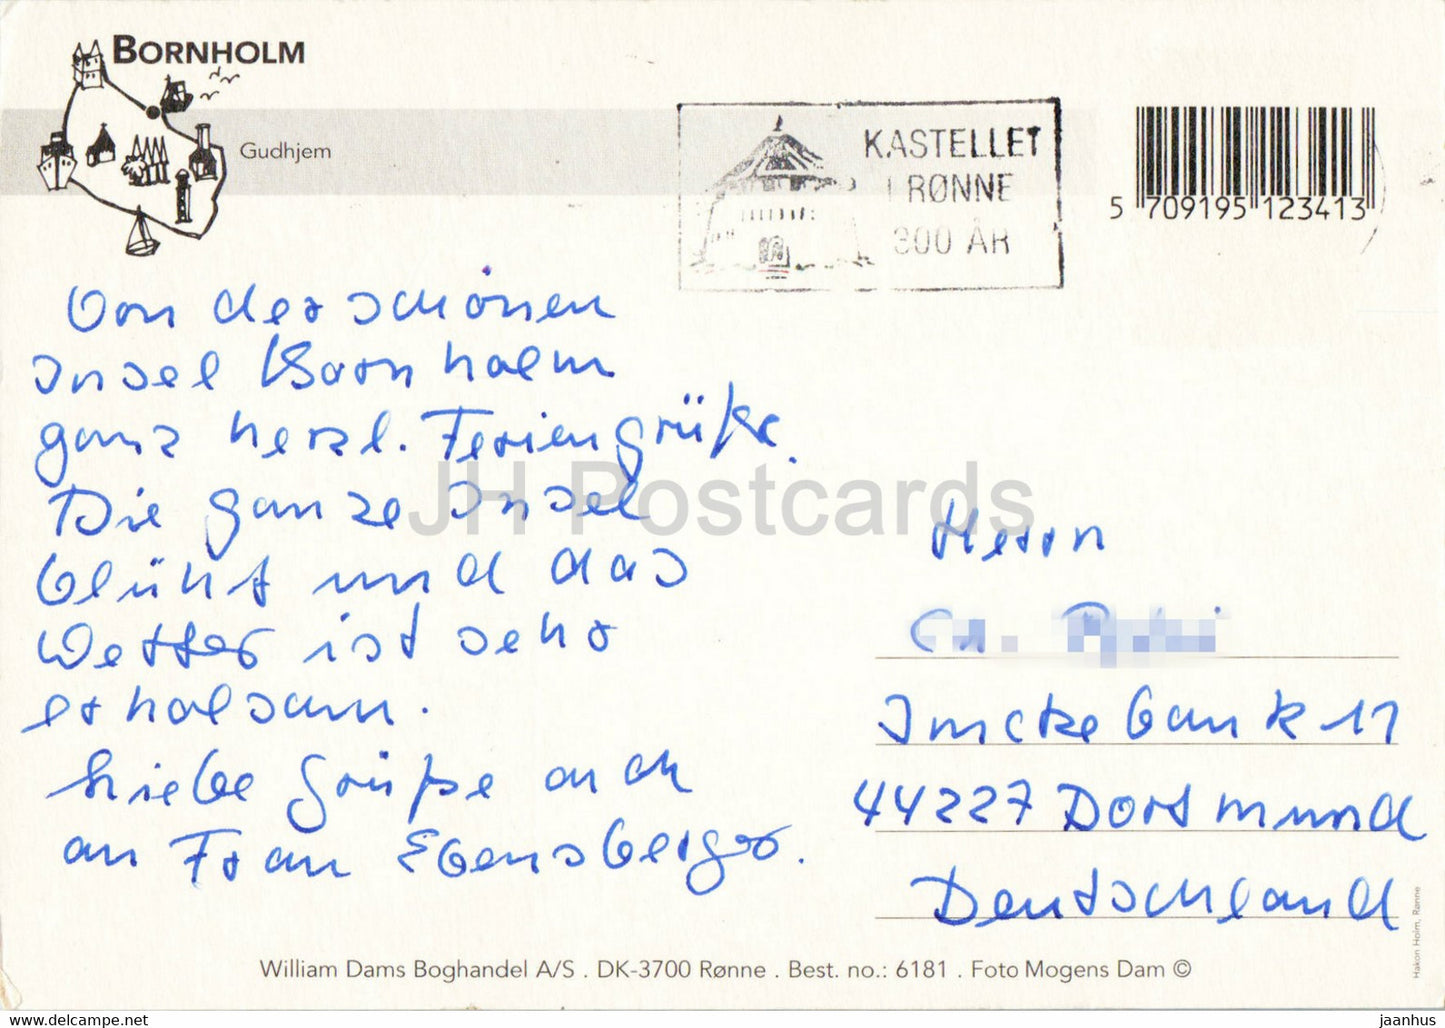 BORNHOLM
Gudhjem
KASTELLET
I RØNNE
300 ÅR
5 709195 123413
Von der schönen
Insel Bornholm
ganz herzl. Feriengrüße.
Die ganze Insel
blüht und das
Wetter ist sehr
erholsam.
Liebe Grüße auch
an Frau Ebensberger.
JH Postcards
Herrn
44227 Dortmund
Deutschland
Hakon Holm, Rønne
William Dams Boghandel A/S . DK-3700 Rønne . Best. no.: 6181 . Foto Mogens Dam ©
hip-point.com
jaanhus